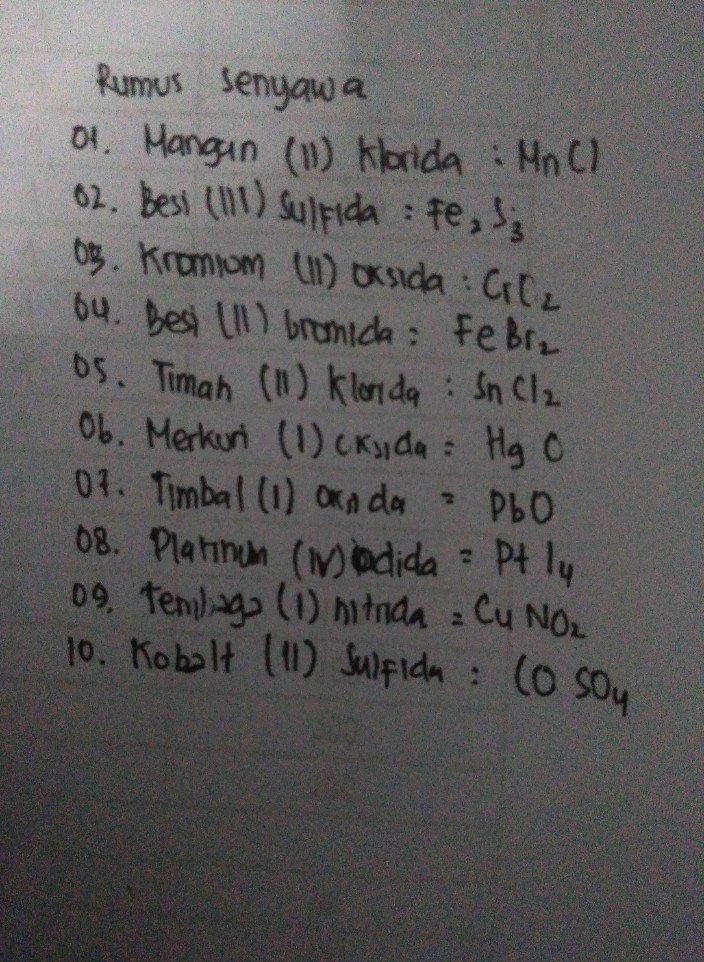 Rumus senyawa
01. Mangan (II) klorida : MnCl
02. Besi (III) Sulfida : Fe₂S₃
03. Kromiom (II) oksida : CrC₂
04. Besi (II) bromida : FeBr₂
05. Timah (II) Klorida : SnCl₂
06. Merkuri (I) cksida = Hg O
07. Timbal (I) = PbO
08. Platinum (IV) iodida = Pt I₄
09. Tembaga (I) nitrida = Cu NO₂
10. Kobalt (II) Sulfida : CO SO₄